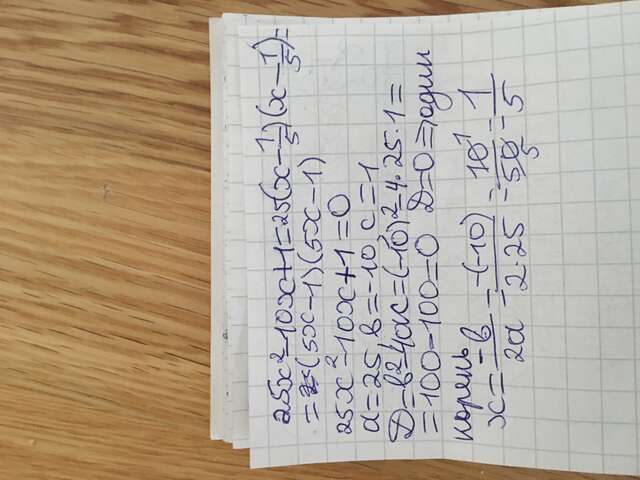 25x² - 10x + 1 = 25(x - 1/5)(x - 1/5) =
= (5x - 1)(5x - 1)
25x² - 10x + 1 = 0
a = 25, b = -10, c = 1
D = b² - 4ac = (-10)² - 4 · 25 · 1 =
= 100 - 100 = 0 D = 0 ⇒ один
корень
x = -b/2a = -(-10)/2·25 = 10/50 = 1/5